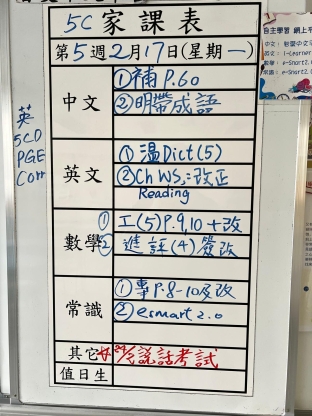 5C 家課表
第5週2月17日(星期一)
中文
①補 P.60
②明帶成語
英
5CD
PGE
Corr
英文
①温Dict(5)
②Ch WS₂:改正
Reading
數學
①工(5)P.9,10+改
②進評(4)簽改
常識
①專P.8-10及改
②esmart 2.0
其它
說話考試
值日生
自主學習 網上平
中文:
英文: i-Learner
數學: e-Smart2.
常識: e-Smart2.